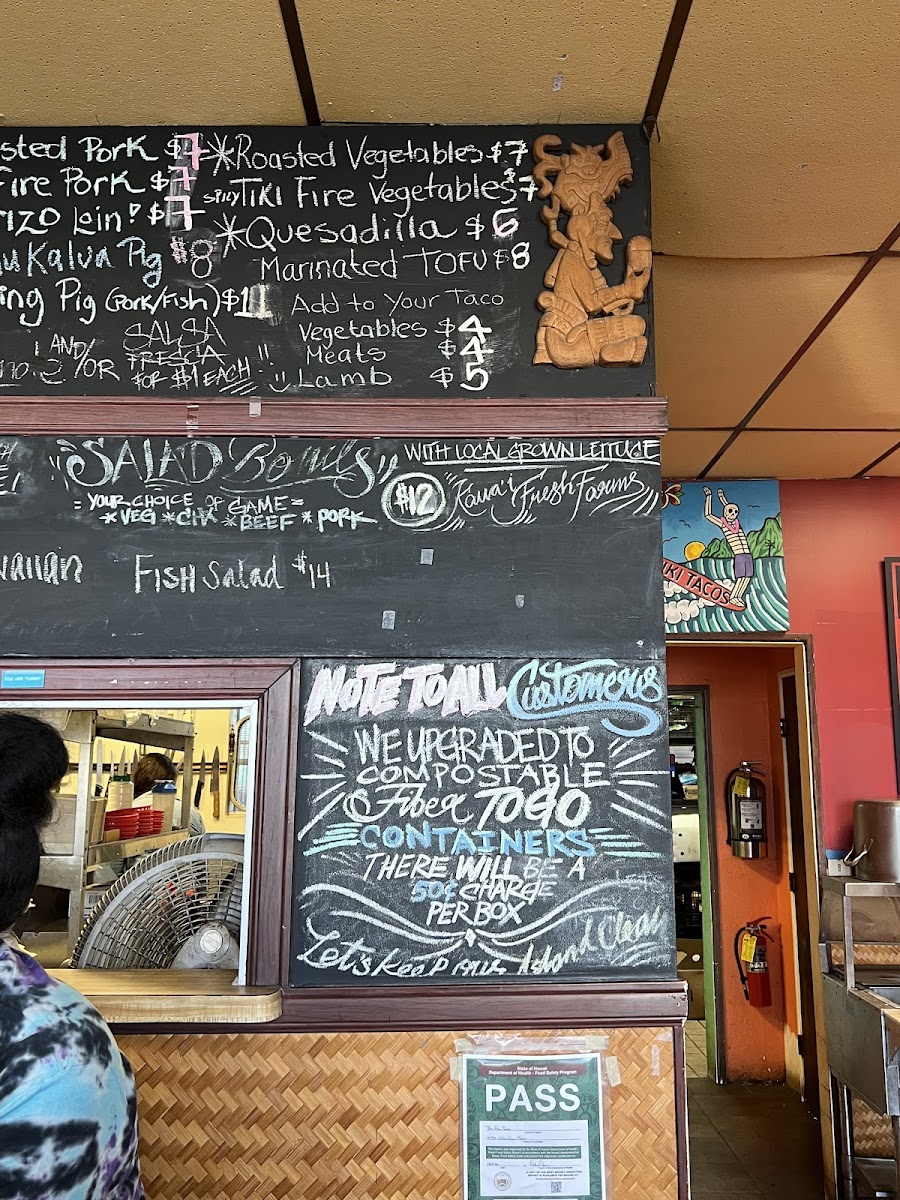 sted Pork $7
Fire Pork $7
rizo Lein' $7
u Kalua Pig $8
ing Pig (Pork/Fish) $11
AND/OR SALSA FRESCIA
FOR $1 EACH!!
*Roasted Vegetables $7
spicy TIKI Fire Vegetables $7
*Quesadilla $6
Marinated TOFU $8
Add to Your Taco
Vegetables $4
Meats $4
Lamb $5
"SALAD Bowls"
WITH LOCAL GROWN LETTUCE
= YOUR CHOICE OF GAME =
*VEG *CHK *BEEF *PORK
$12
Kaua'i Fresh Farms
waiian
FISH Salad $14
YOU ARE YUMMY
IKI TACOS
NOTE TO ALL Customers
WE UPGRADED TO
COMPOSTABLE
& Fiber TOGO
CONTAINERS
THERE WILL BE A
50¢ CHARGE
PER BOX
Let's keep our Island Clean
State of Hawaii
Department of Health - Food Safety Program
PASS